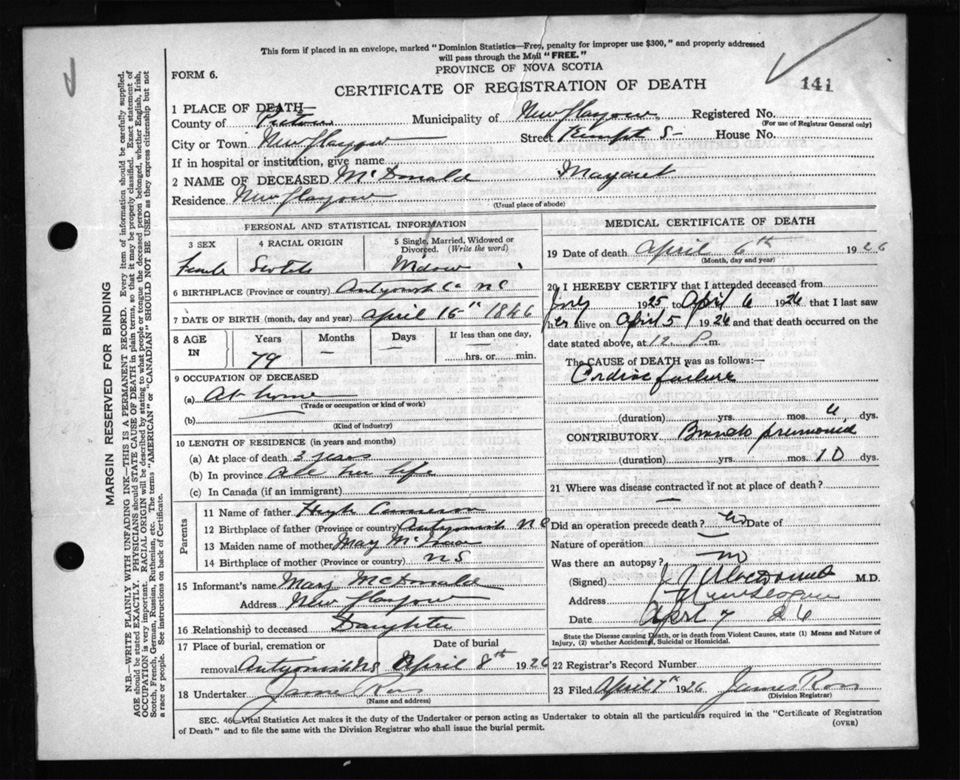 This form if placed in an envelope, marked "Dominion Statistics—Free, penalty for improper use $300," and properly addressed
will pass through the Mail "FREE."
PROVINCE OF NOVA SCOTIA
FORM 6.
CERTIFICATE OF REGISTRATION OF DEATH
141
1 PLACE OF DEATH—
County of Pictou Municipality of New Glasgow Registered No.
(For use of Registrar General only)
City or Town New Glasgow Street Temple S- House No.
If in hospital or institution, give name
2 NAME OF DECEASED McDonald Margaret
Residence New Glasgow
(Usual place of abode)
PERSONAL AND STATISTICAL INFORMATION
3 SEX 4 RACIAL ORIGIN 5 Single, Married, Widowed or Divorced. (Write the word)
Female Scotch Widow
6 BIRTHPLACE (Province or country) Antigonish Co NS
7 DATE OF BIRTH (month, day and year) April 15th 1846
8 AGE IN Years Months Days If less than one day,
79 — — hrs. or min.
9 OCCUPATION OF DECEASED
(a) At home
(Trade or occupation or kind of work)
(b)
(Kind of industry)
10 LENGTH OF RESIDENCE (in years and months)
(a) At place of death 3 years
(b) In province All her life
(c) In Canada (if an immigrant)
Parents
11 Name of father Hugh Cameron
12 Birthplace of father (Province or country) Antigonish NS
13 Maiden name of mother May
14 Birthplace of mother (Province or country) NS
15 Informant's name Mary McDonald
Address New Glasgow
16 Relationship to deceased Daughter
17 Place of burial, cremation or Date of burial
removal Antigonish NS April 8th 1926
18 Undertaker James Ross
(Name and address)
MEDICAL CERTIFICATE OF DEATH
19 Date of death April 6th 1926
(Month, day and year)
20 I HEREBY CERTIFY that I attended deceased from
1925 to April 6 1926 that I last saw
her alive on April 5 1926 and that death occurred on
date stated above, at 12 P.m.
The CAUSE of DEATH was as follows:—
Cardiac failure
(duration) yrs. mos. dys.
CONTRIBUTORY Broncho pneumonia
(duration) yrs. mos. 10 dys.
21 Where was disease contracted if not at place of death?
—
Did an operation precede death? No Date of
Nature of operation —
Was there an autopsy? no
(Signed) M.D.
Address New Glasgow
Date April 7 26
State the Disease causing Death, or in death from Violent Causes, state (1) Means and Nature of
Injury, (2) whether Accidental, Suicidal or Homicidal.
22 Registrar's Record Number
23 Filed April 7th 1926 James Ross
(Division Registrar)
SEC. 46. Vital Statistics Act makes it the duty of the Undertaker or person acting as Undertaker to obtain all the particulars required in the "Certificate of Registration
of Death" and to file the same with the Division Registrar who shall issue the burial permit.
(OVER)
MARGIN RESERVED FOR BINDING
N.B.—WRITE PLAINLY WITH UNFADING INK—THIS IS A PERMANENT RECORD. Every item of information should be carefully supplied.
AGE should be stated EXACTLY. PHYSICIANS should STATE CAUSE OF DEATH in plain terms, so that it may be properly classified. Exact statement of
OCCUPATION is very important. RACIAL ORIGIN will be described by stating to what people or tongue the deceased person belonged, whether English, Irish,
Scotch, French, German, Russian, Ruthenian, etc. The terms "AMERICAN" or "CANADIAN" SHOULD NOT BE USED as they express citizenship but not
a race or people. See instructions on back of Certificate.